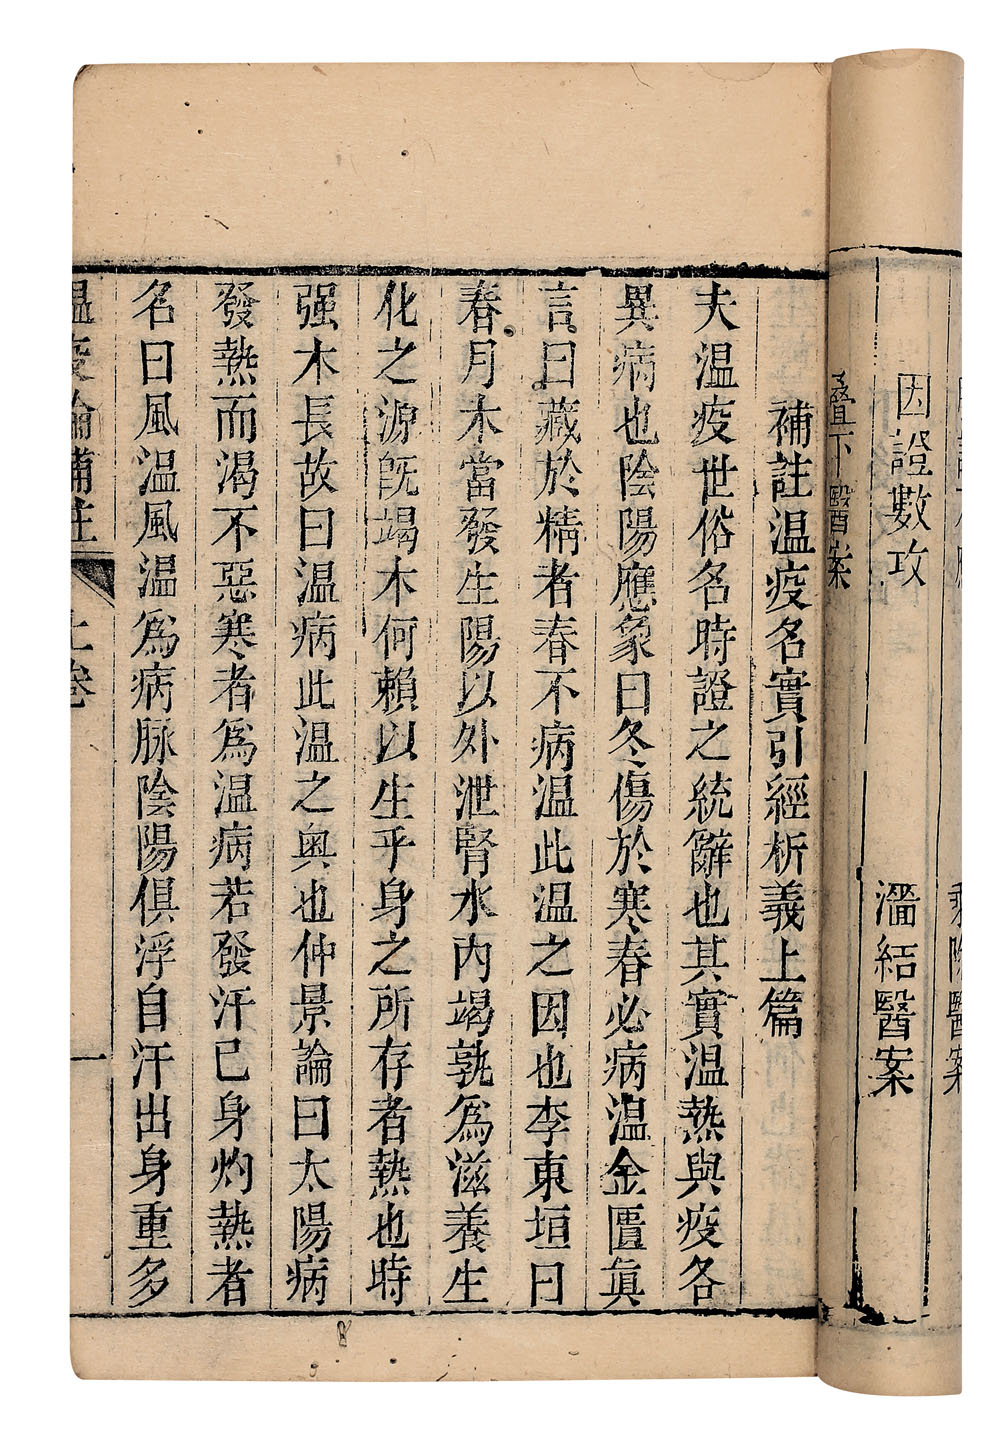 乘除醫案
因證數攻 溜結醫案
疊下醫案
補註温疫名實引經析義上篇
夫温疫世俗名時證之統辭也其實温熱與疫各
異病也陰陽應象曰冬傷於寒春必病温金匱眞
言曰藏於精者春不病温此温之因也李東垣曰
春月木當發生陽以外泄腎水内竭孰爲滋養生
化之源旣竭木何賴以生乎身之所存者熱也時
强木長故曰温病此温之奥也仲景論曰太陽病
發熱而渴不惡寒者爲温病若發汗已身灼熱者
名曰風温風温爲病脉陰陽俱浮自汗出身重多
温疫論補註 上卷 一